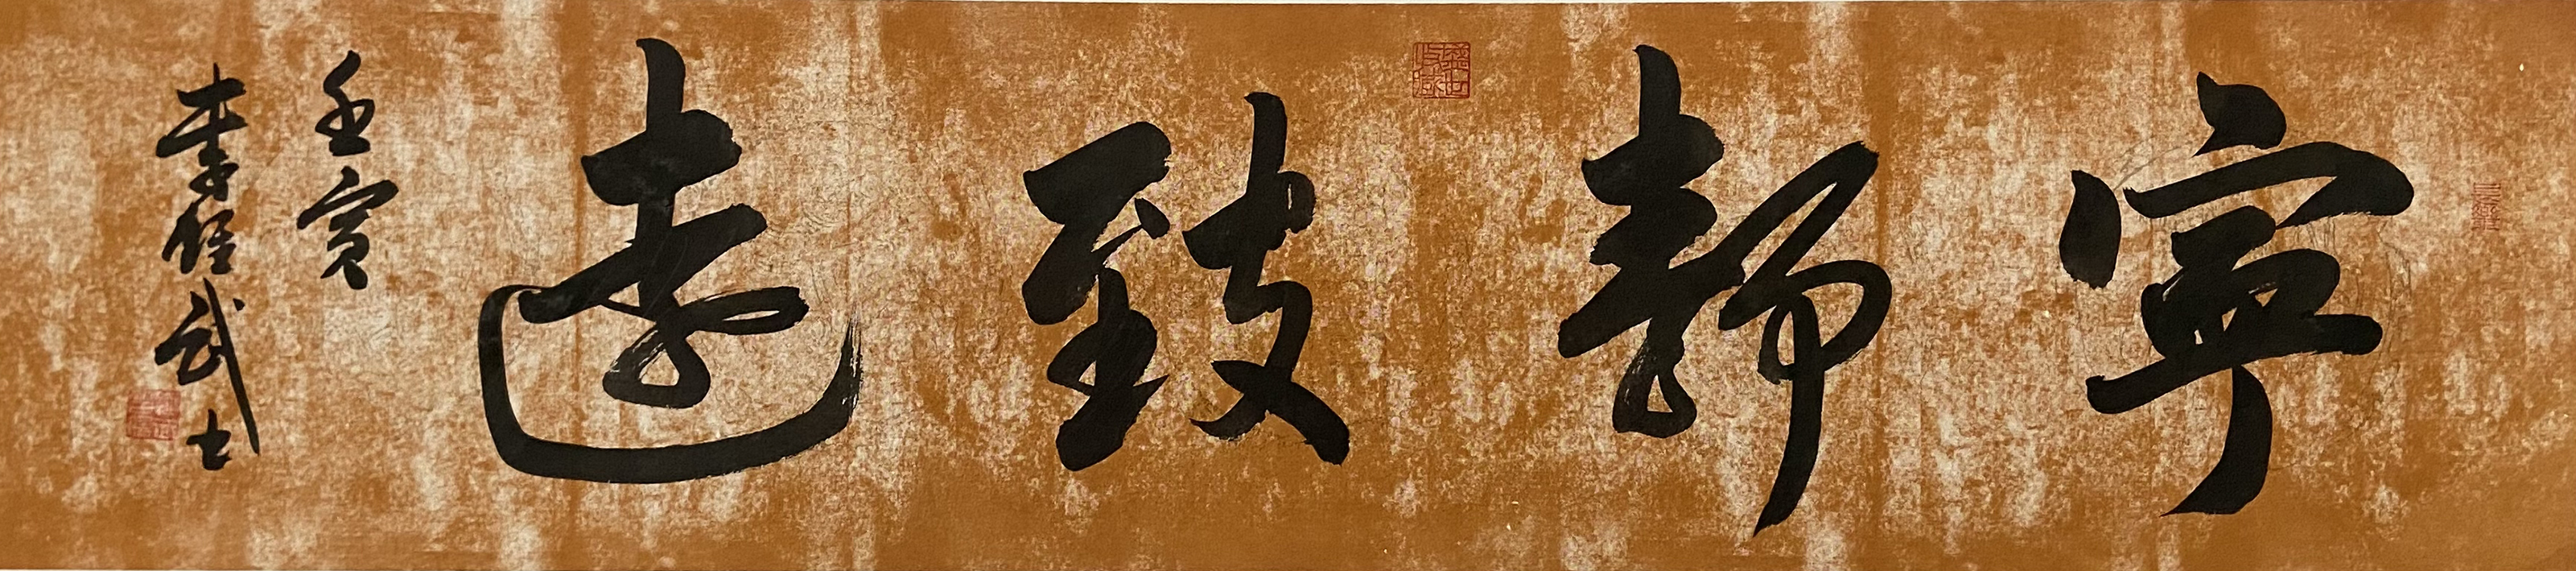 寧靜致遠
壬寅
李經武士